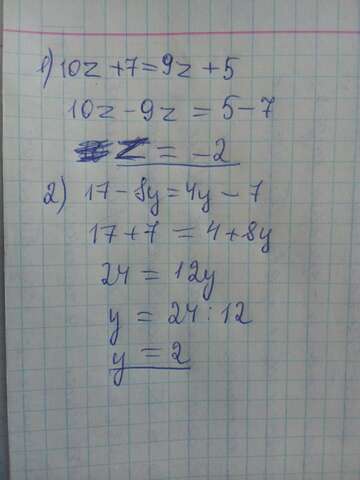 1) 10z + 7 = 9z + 5
10z - 9z = 5 - 7
z = -2
2) 17 - 8y = 4y - 7
17 + 7 = 4 + 8y
24 = 12y
y = 24 : 12
y = 2